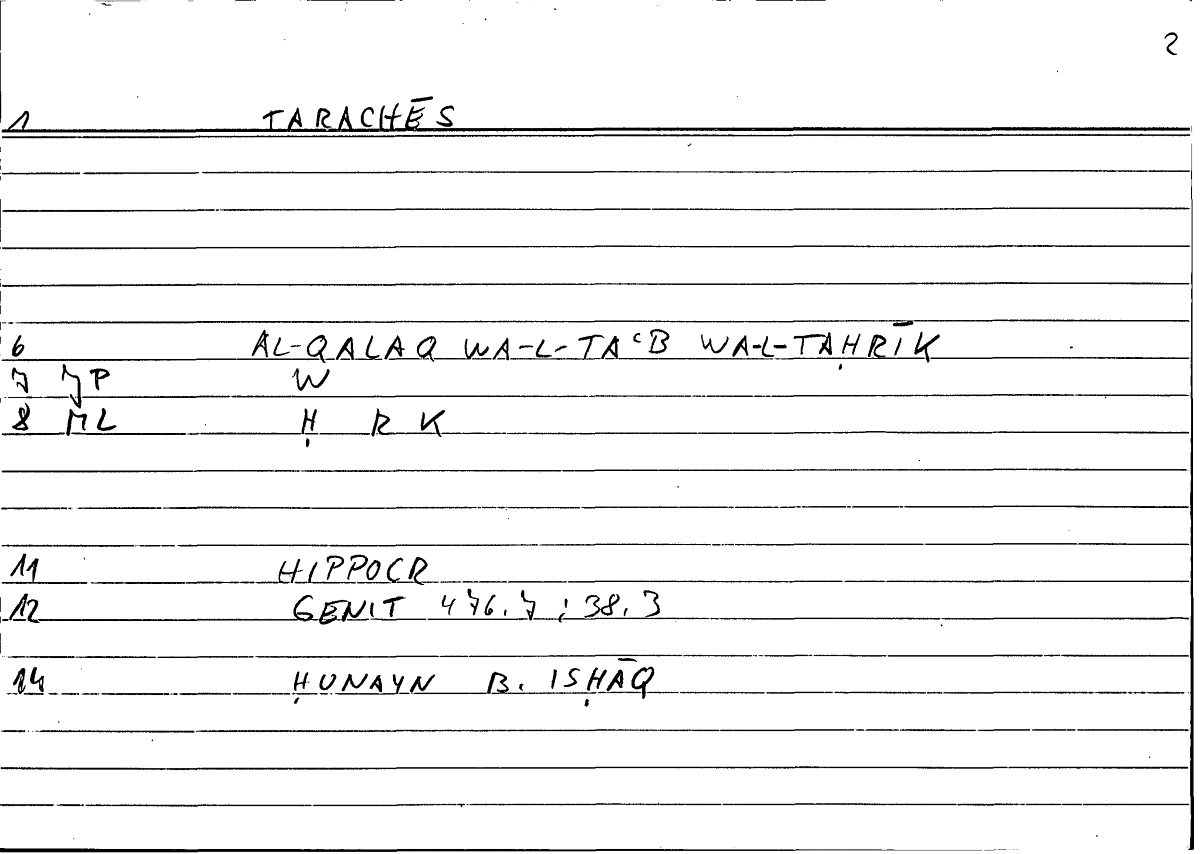 2
1 TARACHĒS
6 AL-QALAQ WA-L-TAʿB WA-L-TAḤRĪK
7 JP W
8 ML Ḥ R K
11 HIPPOCR
12 GENIT 476.7 ; 38.3
14 ḤUNAYN B. ISḤĀQ